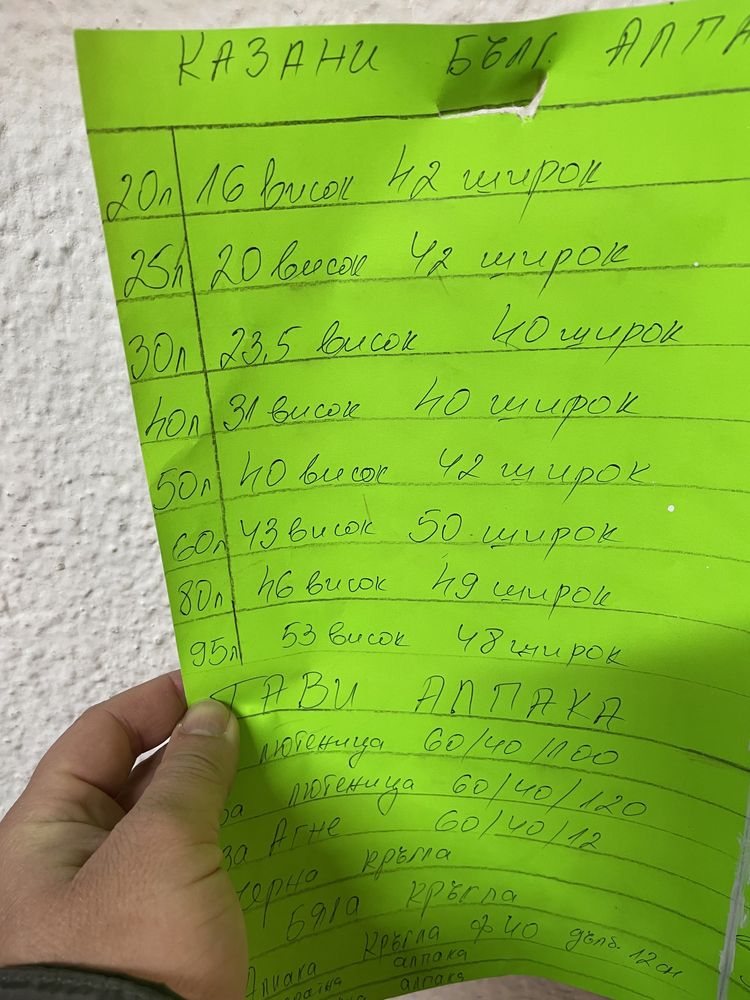 КАЗАНИ БЪЛГ. АЛПА
20л 16 висок 42 широк
25л 20 висок 42 широк
30л 23,5 висок 40 широк
40л 31 висок 40 широк
50л 40 висок 42 широк
60л 43 висок 50 широк
80л 46 висок 49 широк
95л 53 висок 48 широк
ТАВИ АЛПАКА
лютеница 60/40/100
за лютеница 60/40/120
за Агне 60/40/12
черна кръгла
Бяла кръгла
Алпака кръгла ф40 дълб. 12см
алпака
алпака